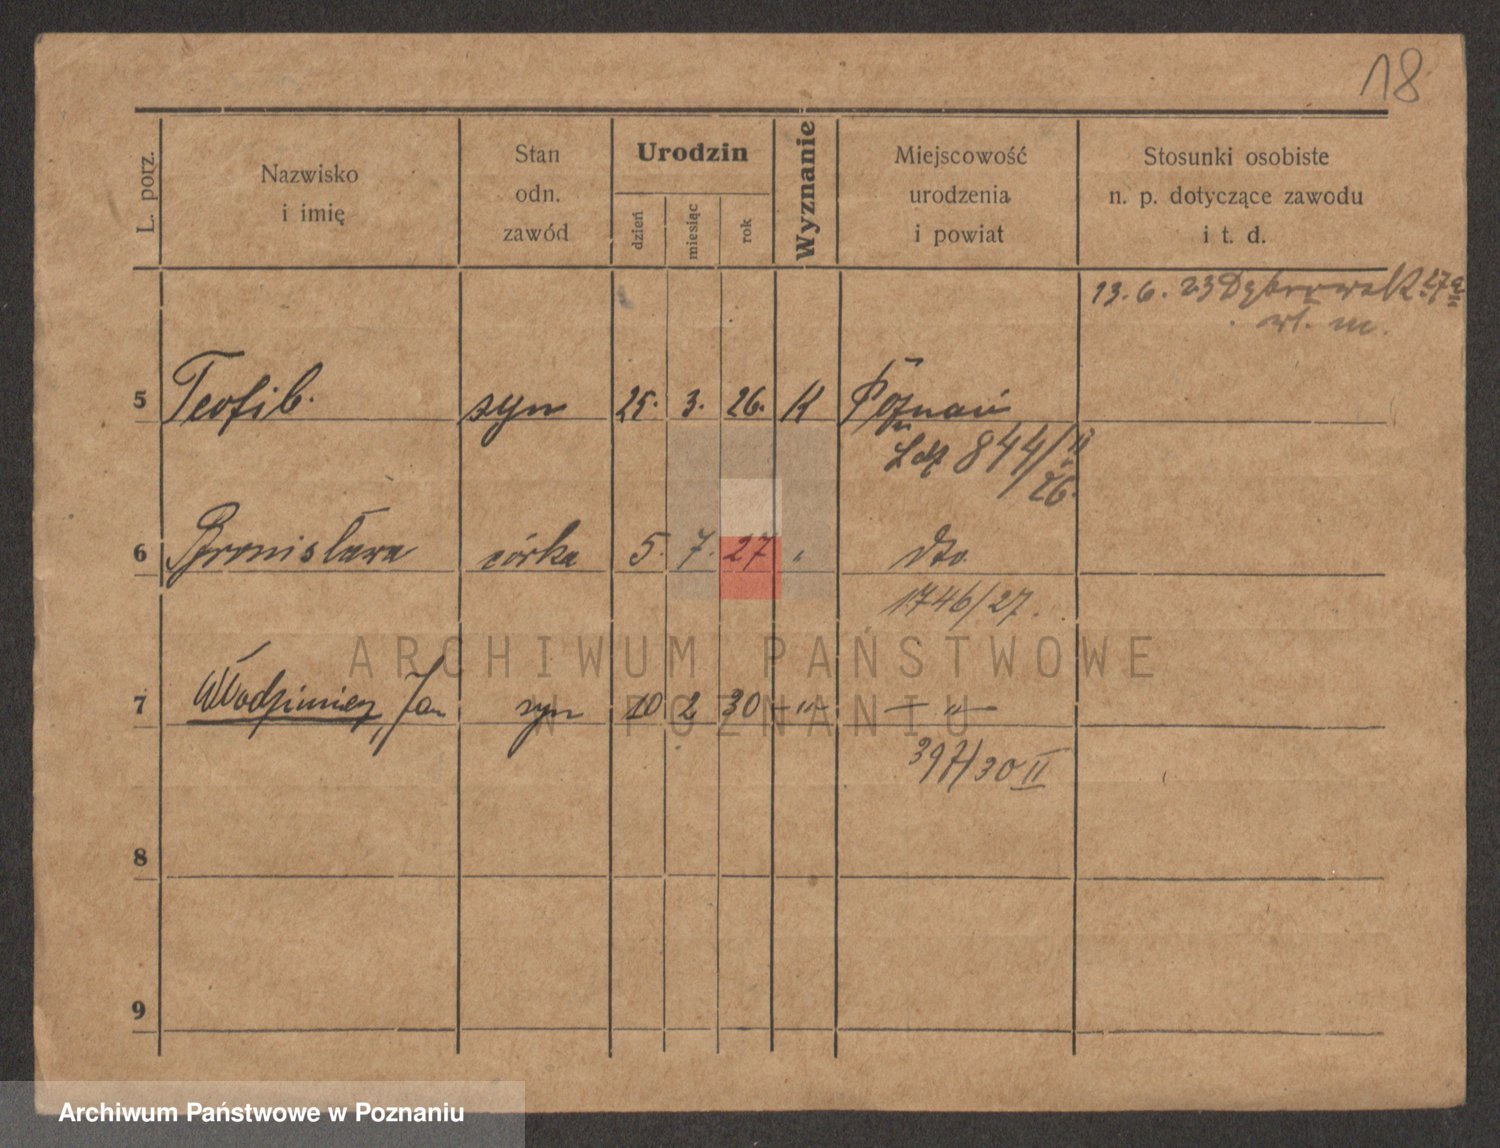 18
L. porz.
Nazwisko
i imię
Stan
odn.
zawód
Urodzin
dzień
miesiąc
rok
Wyznanie
Miejscowość
urodzenia
i powiat
Stosunki osobiste
n. p. dotyczące zawodu
i t. d.
13. 6. 23 Dąbrowsk 27a
wł. m.
5 Teofil. syn 25. 3. 26. K Poznań
844/II
26.
6 Bronisława córka 5. 7. 27 " dto
1746/27.
7 Włodzimierz, Jan syn 10 2 30 -"- -"-
397/30 II
8
9
ARCHIWUM PAŃSTWOWE
W POZNANIU
Archiwum Państwowe w Poznaniu